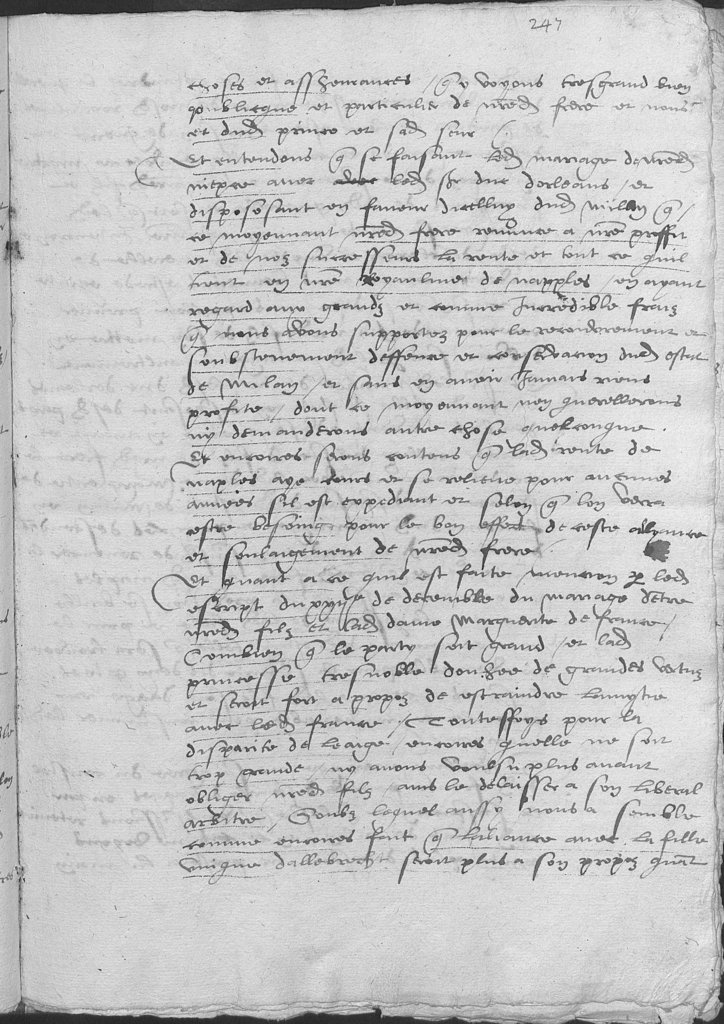 247
choses et assheurances / q̃ y voyons tresgrand bien
publicque et particulier de nr̃ed frere et nous
et dud prince et sad seur /
Et entendons q̃ se faisant led mariage de nr̃ed
niepce avec led sr duc dorleans / et
disposesant en faveur dicelluy dud Milan q̃ /
ce moyennant nr̃ed frere renunce a nr̃e proffit
et de noz successeurs la rente et tout ce quil
tient en nr̃e Royaulme de napples / en ayant
regard aux grandz et comme Incredible fraiz
q̃ nous avons supportez pour le recouvrement et
soubstenement deffence et conservacion dud estat
de Milan / et sans en avoir Jamais riens
profite / dont ce moyennant non querellerons
ny demanderons autre chose quelconque .
Et encoires serons contens q̃ lad rente de
naples aye cours et se relieve pour aucunes
annees sil est expediant et selon q̃ lon verra
estre besoing pour le bon effect de ceste alyance
et soulaigement de nr̃ed frere .
Et quant a ce quil est faite mencion par led
escript du xxiiije de decembre du mariage dentre
nr̃ed filz et lad dame Marguerite de france /
Combien q̃ le party soit grand / et lad
princesse tresnoble douhee de grandes vertuz
et seroit fort a propoz de estraindre lamytie
avec led france / Toutesfoys pour la
disparite de leaige / encoires quelle ne soit
trop grande / ny avons voulsu plus avant
obliger nr̃ed filz / ains le delaisser a son liberal
arbitre / Soubz lequel aussy nous a semble
comme encoires fait q̃ laliance avec la fille
unique dallebrecht seroit plus a son propoz quant